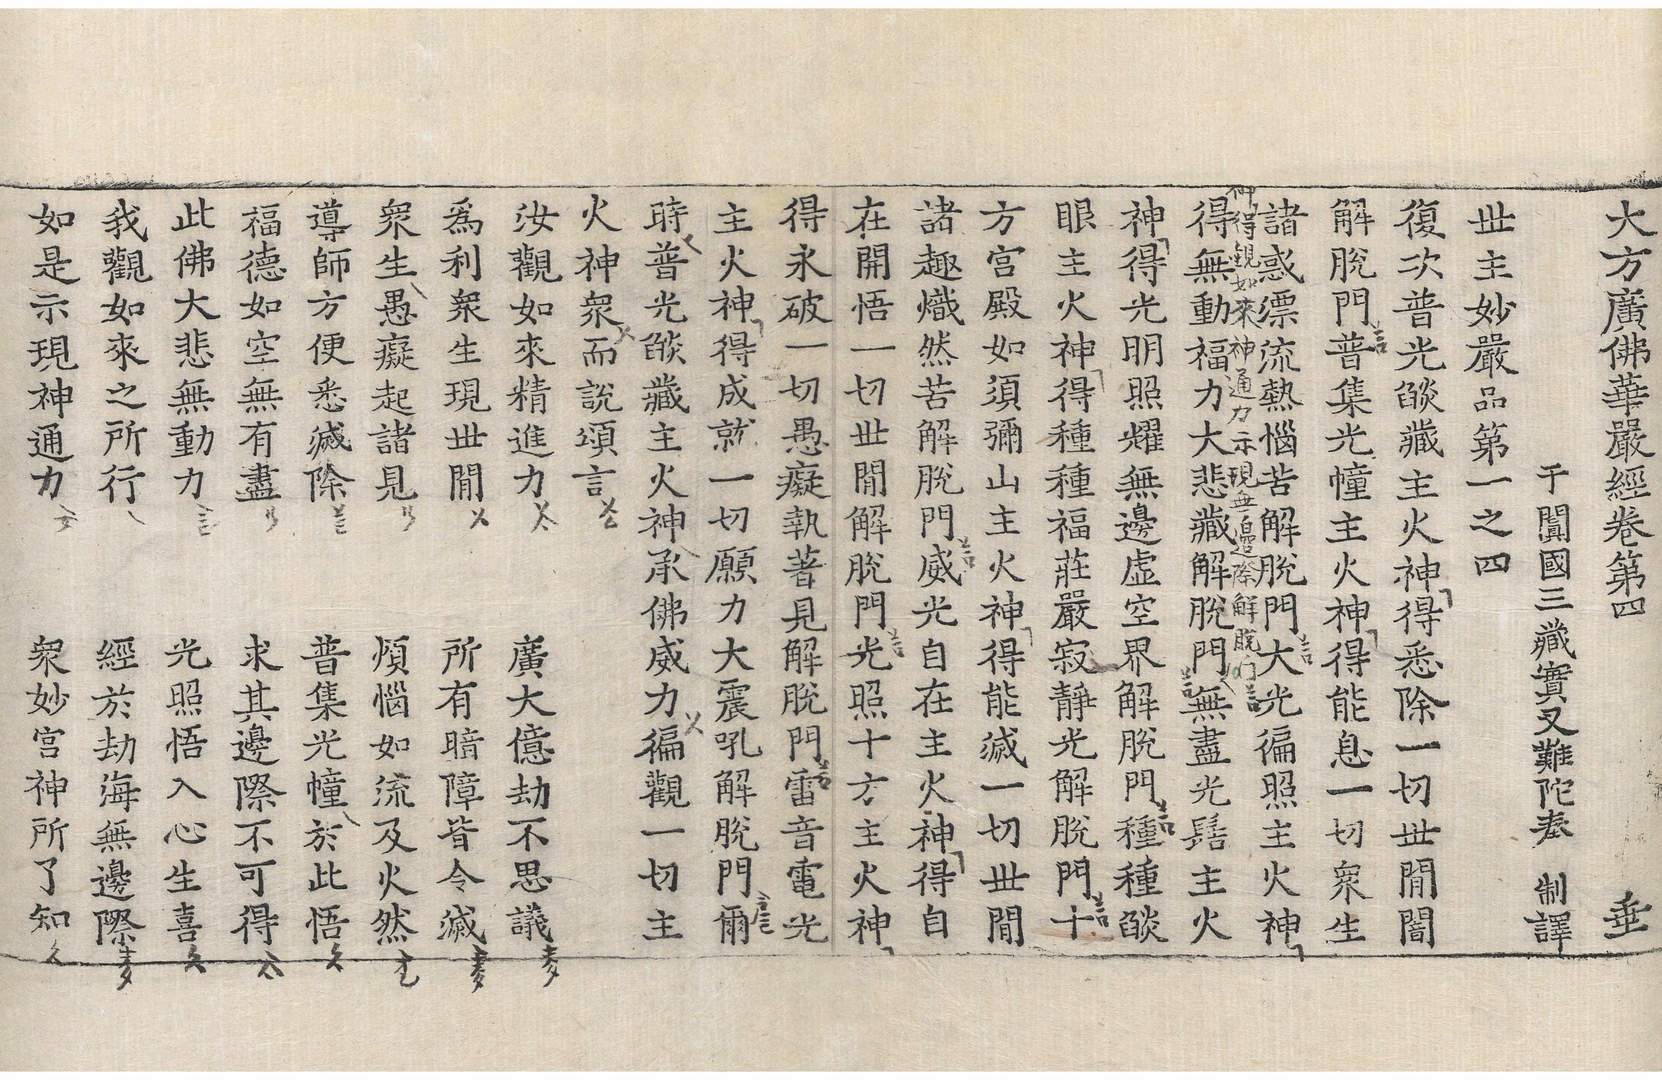 大方廣佛華嚴經卷第四 垂
于闐國三藏實叉難陀奉 制譯
世主妙嚴品第一之四
復次普光燄藏主火神得悉除一切世閒闇
解脫門普集光幢主火神得能息一切衆生
諸惑漂流熱惱苦解脫門大光徧照主火神
神得觀如來神通力示現無邊際解脫門
得無動福力大悲藏解脫門無盡光髻主火
神得光明照耀無邊虛空界解脫門種種燄
眼主火神得種種福莊嚴寂靜光解脫門十
方宮殿如須彌山主火神得能滅一切世閒
諸趣熾然苦解脫門威光自在主火神得自
在開悟一切世閒解脫門光照十方主火神
得永破一切愚癡執著見解脫門雷音電光
主火神得成就一切願力大震吼解脫門爾
時普光燄藏主火神承佛威力徧觀一切主
火神衆而說頌言
汝觀如來精進力 廣大億劫不思議
爲利衆生現世閒 所有暗障皆令滅
衆生愚癡起諸見 煩惱如流及火然
導師方便悉滅除 普集光幢於此悟
福德如空無有盡 求其邊際不可得
此佛大悲無動力 光照悟入心生喜
我觀如來之所行 經於劫海無邊際
如是示現神通力 衆妙宮神所了知